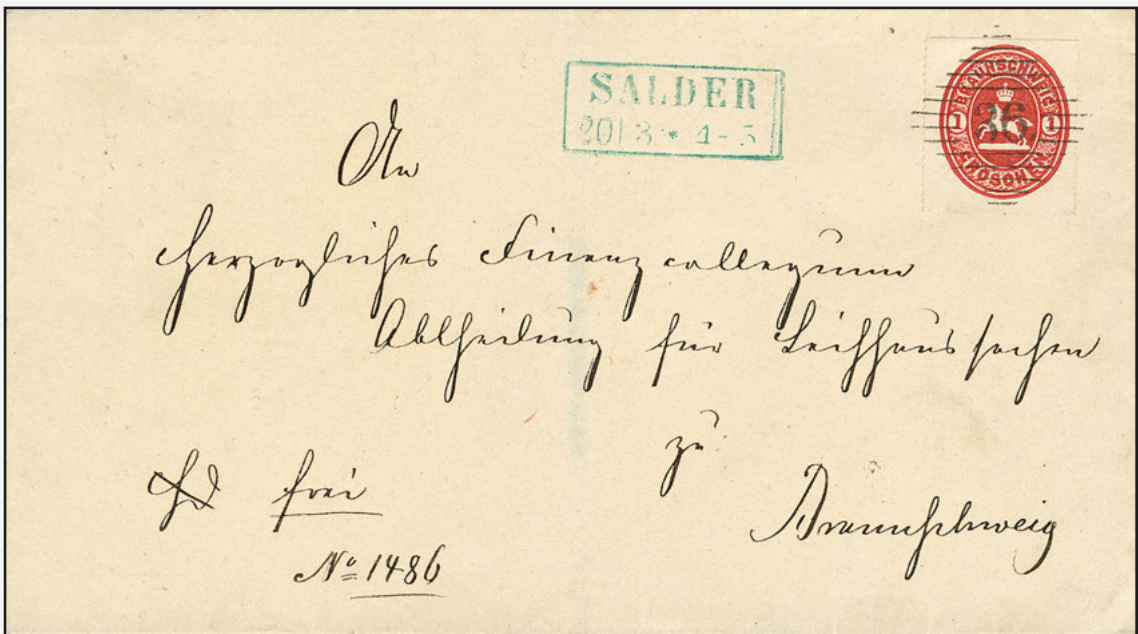 SALDER
20 | 3 * 4-5
BRAUNSCHWEIG
1 36 1
GROSCHEN
An
Herzogliches Finanzcollegium
Abtheilung für Leihhaussachen
zu
Braunschweig
frei
No 1486